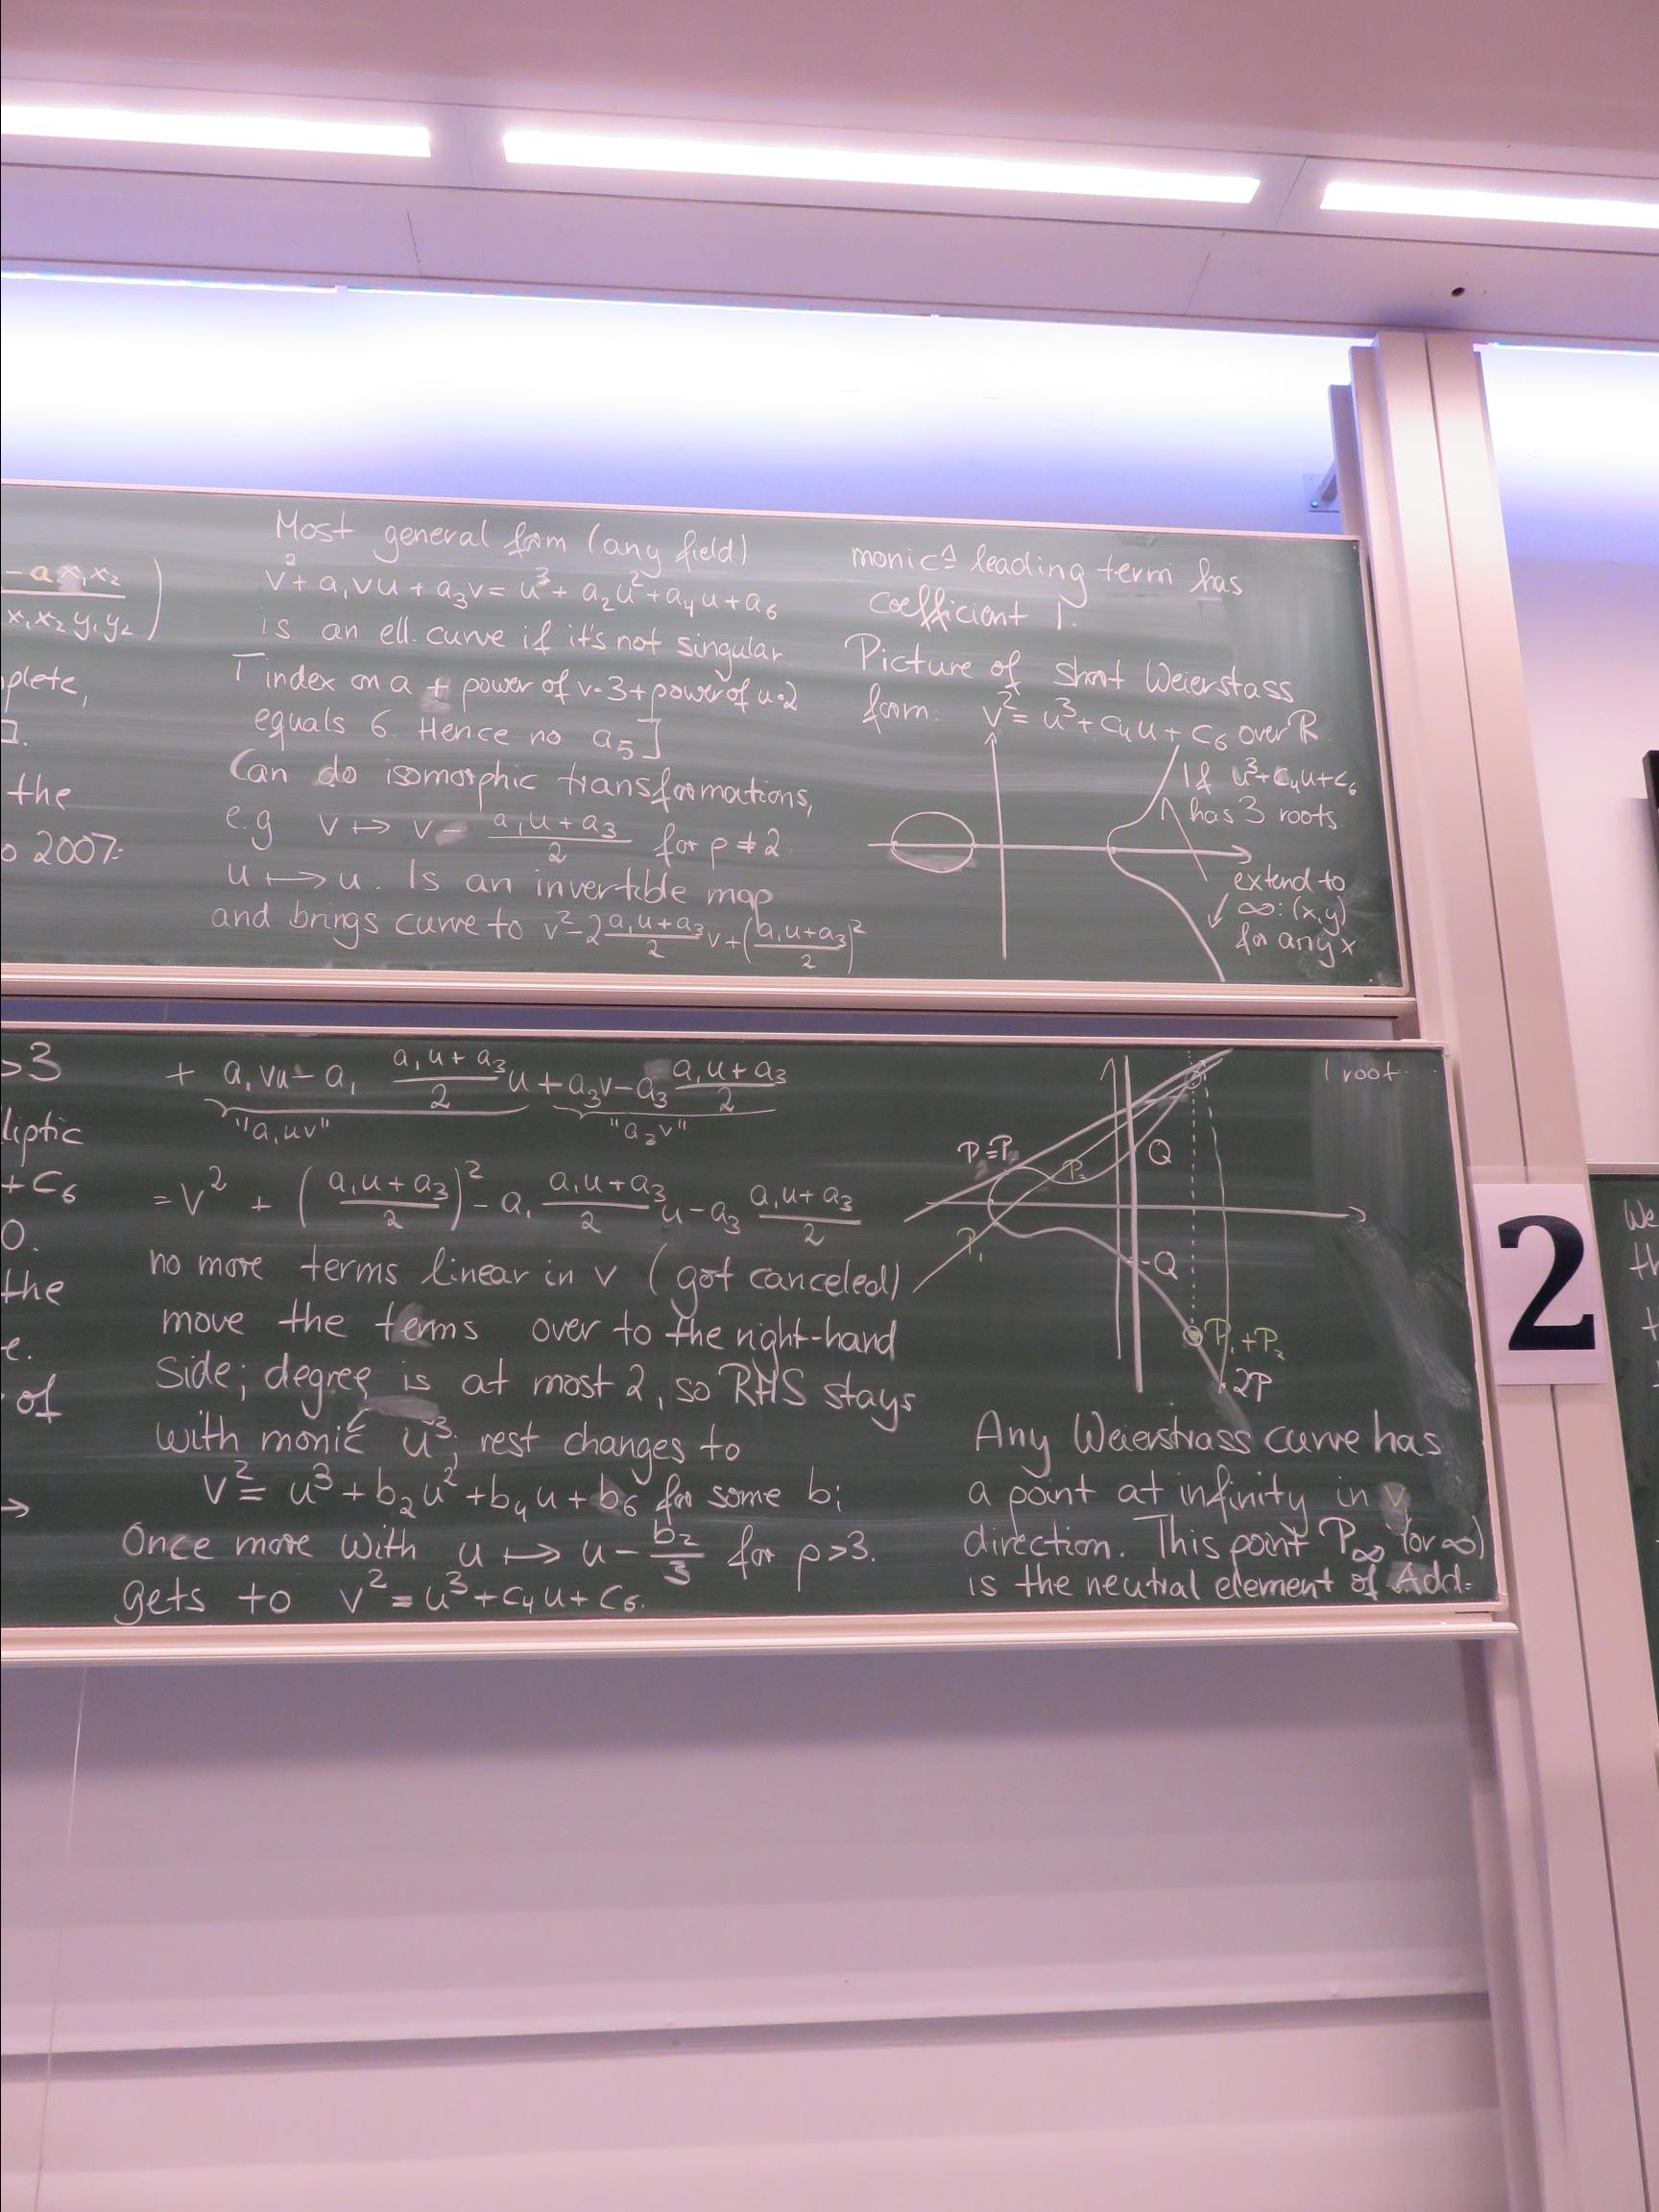 - a x₁x₂
x₁x₂y₁y₂ )
plete,
].
the
o 2007:
Most general form (any field)
v² + a₁vu + a₃v = u³ + a₂u² + a₄u + a₆
is an ell. curve if it's not singular
[index on a + power of v·3 + power of u·2
equals 6. Hence no a₅]
Can do isomorphic transformations,
e.g v ↦ v - (a₁u + a₃)/2 for p ≠ 2
u ↦ u. Is an invertible map
and brings curve to v² - 2 (a₁u + a₃)/2 v + ((a₁u + a₃)/2)²
monic ≙ leading term has
coefficient 1.
Picture of short Weierstass
form. v² = u³ + c₄u + c₆ over R
If u³ + c₄u + c₆
has 3 roots
extend to
∞: (x,y)
for any x
>3
liptic
+ c₆
0.
the
e.
of
→
+ a₁vu - a₁ (a₁u + a₃)/2 u + a₃v - a₃ (a₁u + a₃)/2
"a₁uv" "a₃v"
= v² + ((a₁u + a₃)/2)² - a₁ (a₁u + a₃)/2 u - a₃ (a₁u + a₃)/2
no more terms linear in v (got canceled)
move the terms over to the right-hand
side; degree is at most 2, so RHS stays
with monic u³; rest changes to
v² = u³ + b₂u² + b₄u + b₆ for some bᵢ
Once more with u ↦ u - b₂/3 for p > 3.
gets to v² = u³ + c₄u + c₆.
1 root
P₂
Q
P₁
-Q
P₁+P₂
2P
Any Weierstrass curve has
a point at infinity in v
direction. This point P∞ (or ∞)
is the neutral element of Add.
2
We
th
t